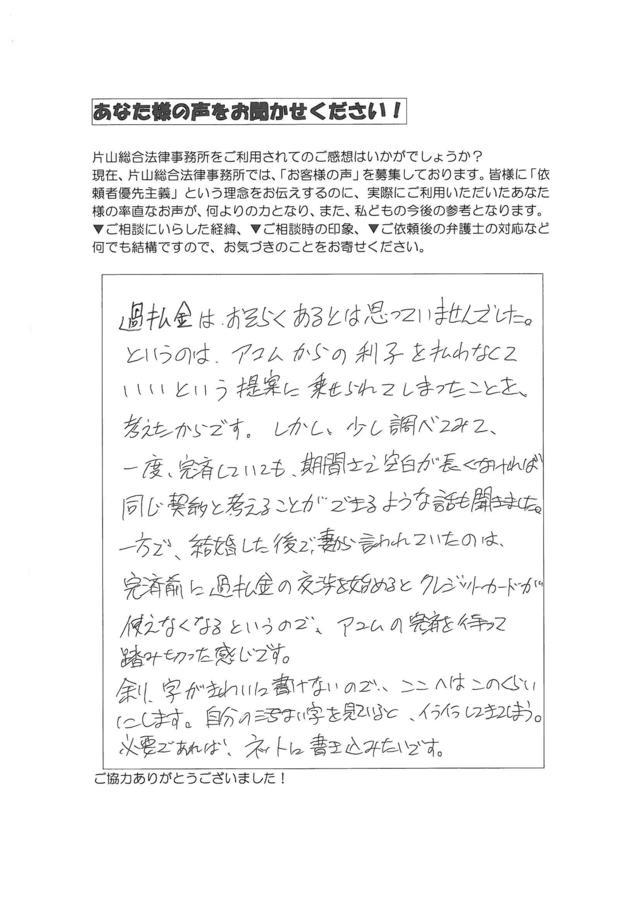 あなた様の声をお聞かせください！
片山総合法律事務所をご利用されてのご感想はいかがでしょうか？
現在、片山総合法律事務所では、「お客様の声」を募集しております。皆様に「依
頼者優先主義」という理念をお伝えするのに、実際にご利用いただいたあなた
様の率直なお声が、何よりの力となり、また、私どもの今後の参考となります。
▼ご相談にいらした経緯、▼ご相談時の印象、▼ご依頼後の弁護士の対応など
何でも結構ですので、お気づきのことをお寄せください。
過払金は、おそらくあるとは思っていませんでした。
というのは、アコムからの利子を払わなくて
いいという提案に乗せられてしまったことを、
考えたからです。しかし、少し調べてみて、
一度、完済していても、期間空白が長くなければ
同じ契約と考えることができるような話も聞きました。
一方で、結婚した後で、妻から言われていたのは、
完済前に過払金の交渉を始めるとクレジットカードが
使えなくなるというので、アコムの完済を待って
踏みきった感じです。
余り、字がきれいに書けないので、ここへはこのくらい
にします。自分の字を見ていると、イライラしてきてしまう。
必要であれば、ネットに書き込みたいです。
ご協力ありがとうございました！